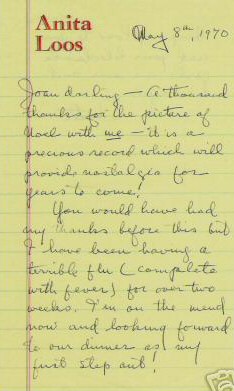 Anita
Loos
May 8th, 1970
Joan darling — A thousand
thanks for the picture of
Noel with me — it is a
precious record which will
provide nostalgia for
years to come!
You would have had
my thanks before this but
I have been having a
terrible flu (complete
with fever) for over two
weeks. I'm on the mend
now and looking forward
to our dinner as my
first step out!